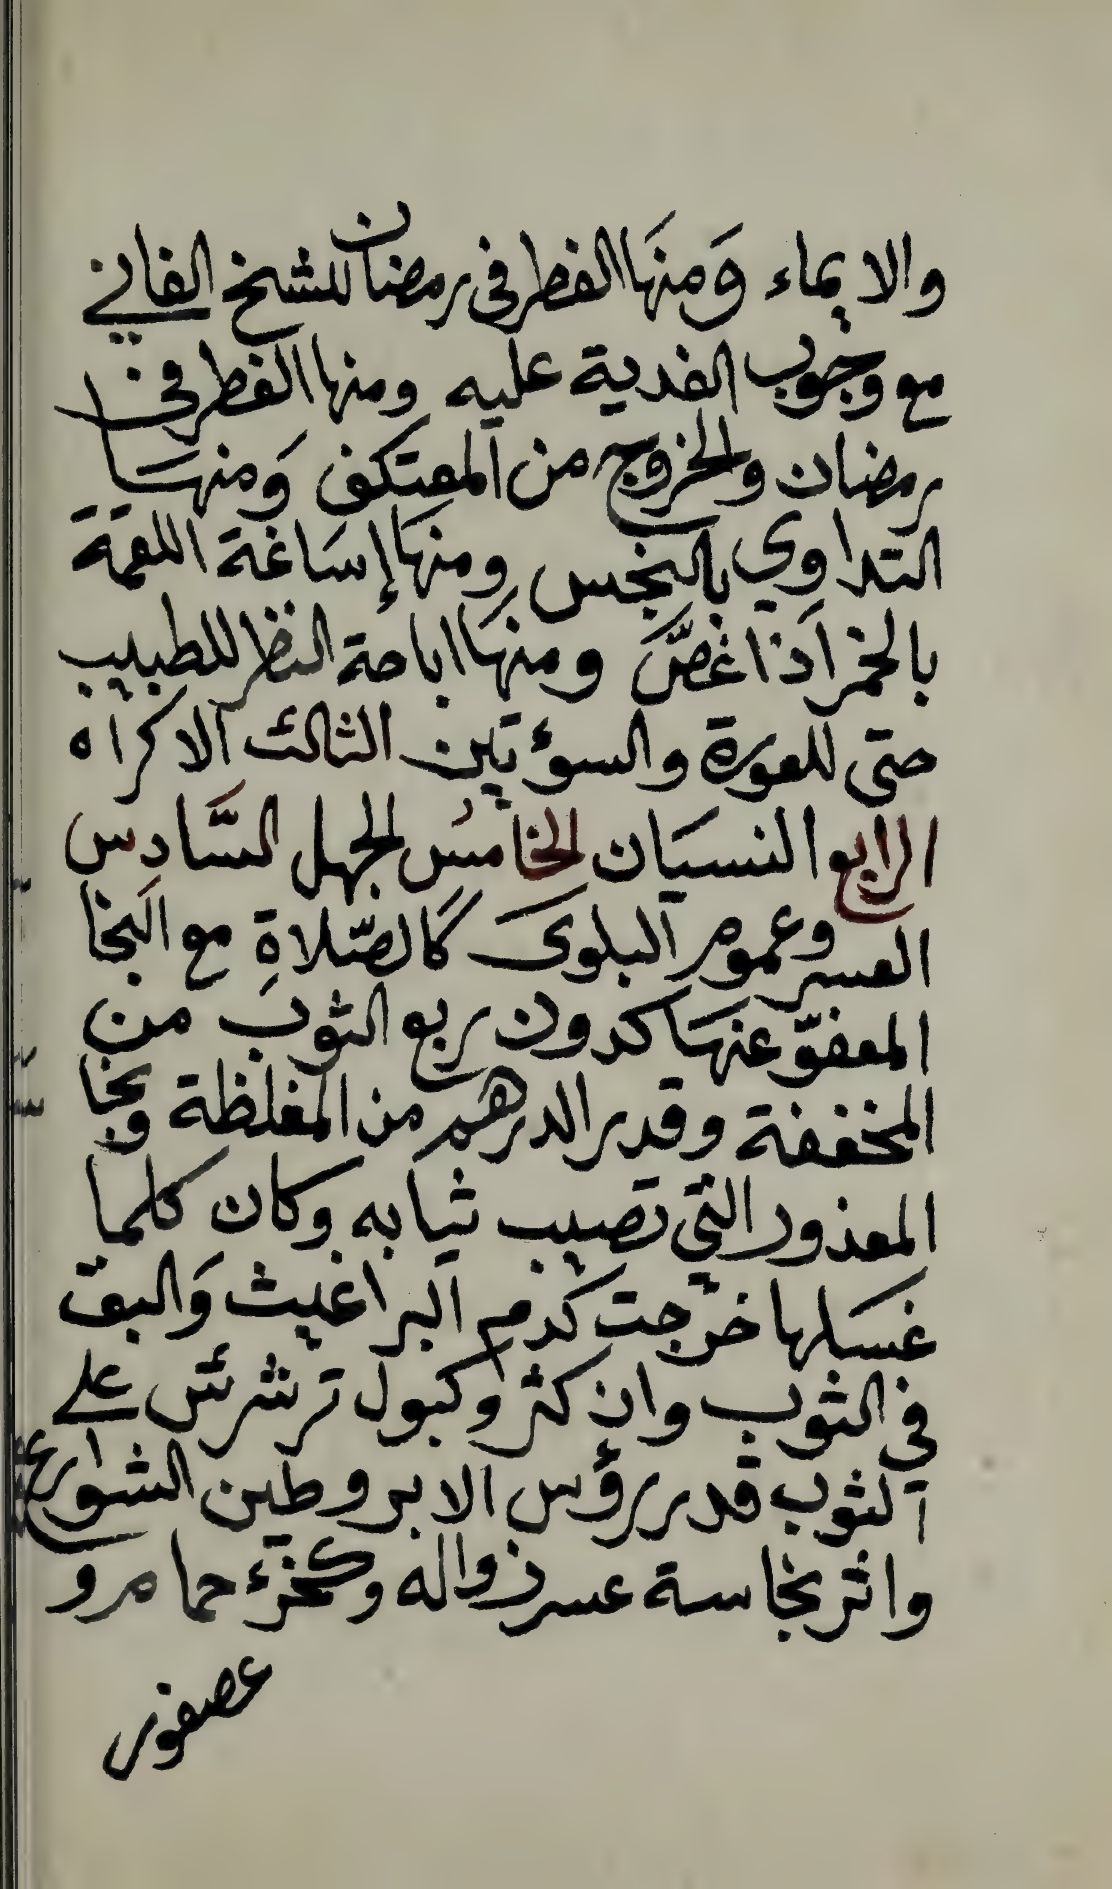 والايماء وَمنهَا الفطر فى رمضان للشيخ الفاني
مع وجوب الفدية عليه ومنها الفطر فى
رمضان والخروج من المعتكف وَمنهَا
التداوي بالنجس ومنهَا إسَاغة اللقمة
بالخمر اذا غصَّ ومنهَا اباحة النظر للطبيب
حتى للعورة والسوءتين الثالث الاكراه
الرابع النسيَان الخامسُ الجهل السَّادس
العسر وعموم البلوى كَالصّلاةِ مع النجا
المعفوّ عنهَا كدون ربع الثوب من
المخففة وقدر الدرهم من المغلظة ونجا
المعذور التي تصيب ثيابه وكان كلما
غسَلها خرجت كدم البراغيث وَالبق
في الثوب وان كثر وكبول ترشرش على
الثوب قدر رؤس الابر وطين الشوارع
واثر نجاسة عسر زواله وكخرء حمام و
عصفور